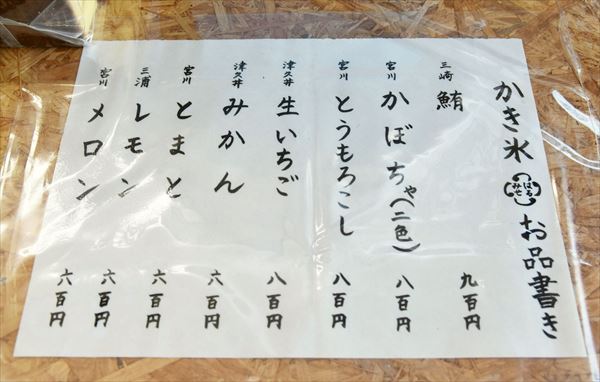 かき氷 みせ はる お品書き
三崎 鮪 九百円
宮川 かぼちゃ(二色) 八百円
宮川 とうもろこし 八百円
津久井 生いちご 八百円
津久井 みかん 六百円
宮川 とまと 六百円
三浦 レモン 六百円
宮川 メロン 六百円